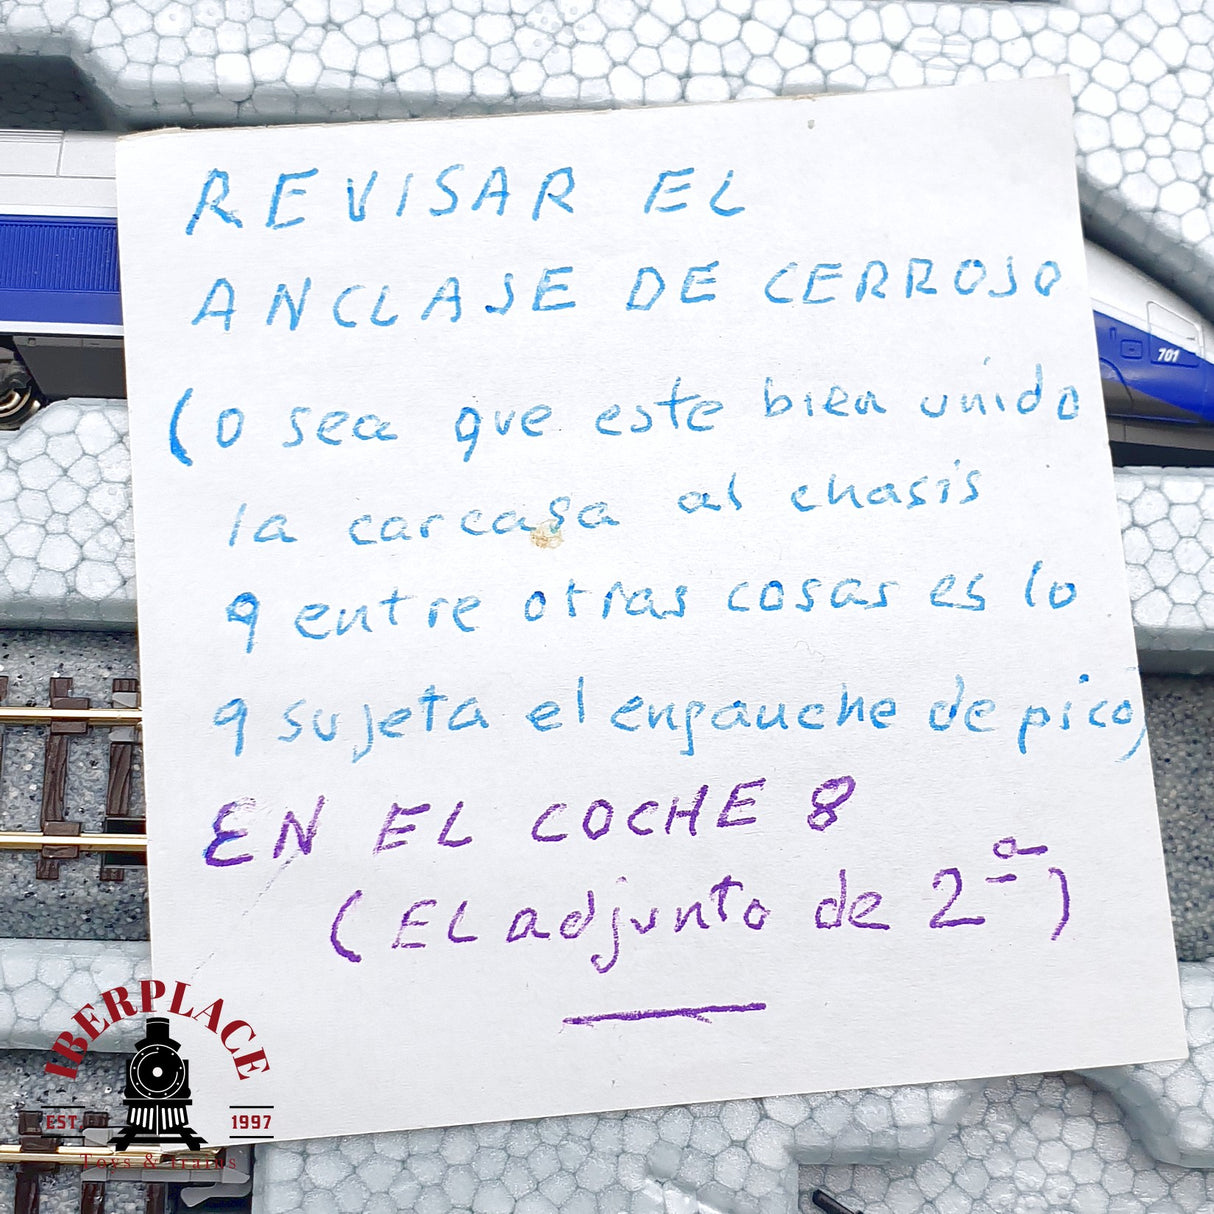 REVISAR EL
ANCLAJE DE CERROJO
701
(o sea que este bien unido
la carcasa al chasis
q entre otras cosas es lo
q sujeta el enganche de pico)
EN EL COCHE 8
(EL adjunto de 2ª)
IBERPLACE
EST. 1997
Toys & Trains